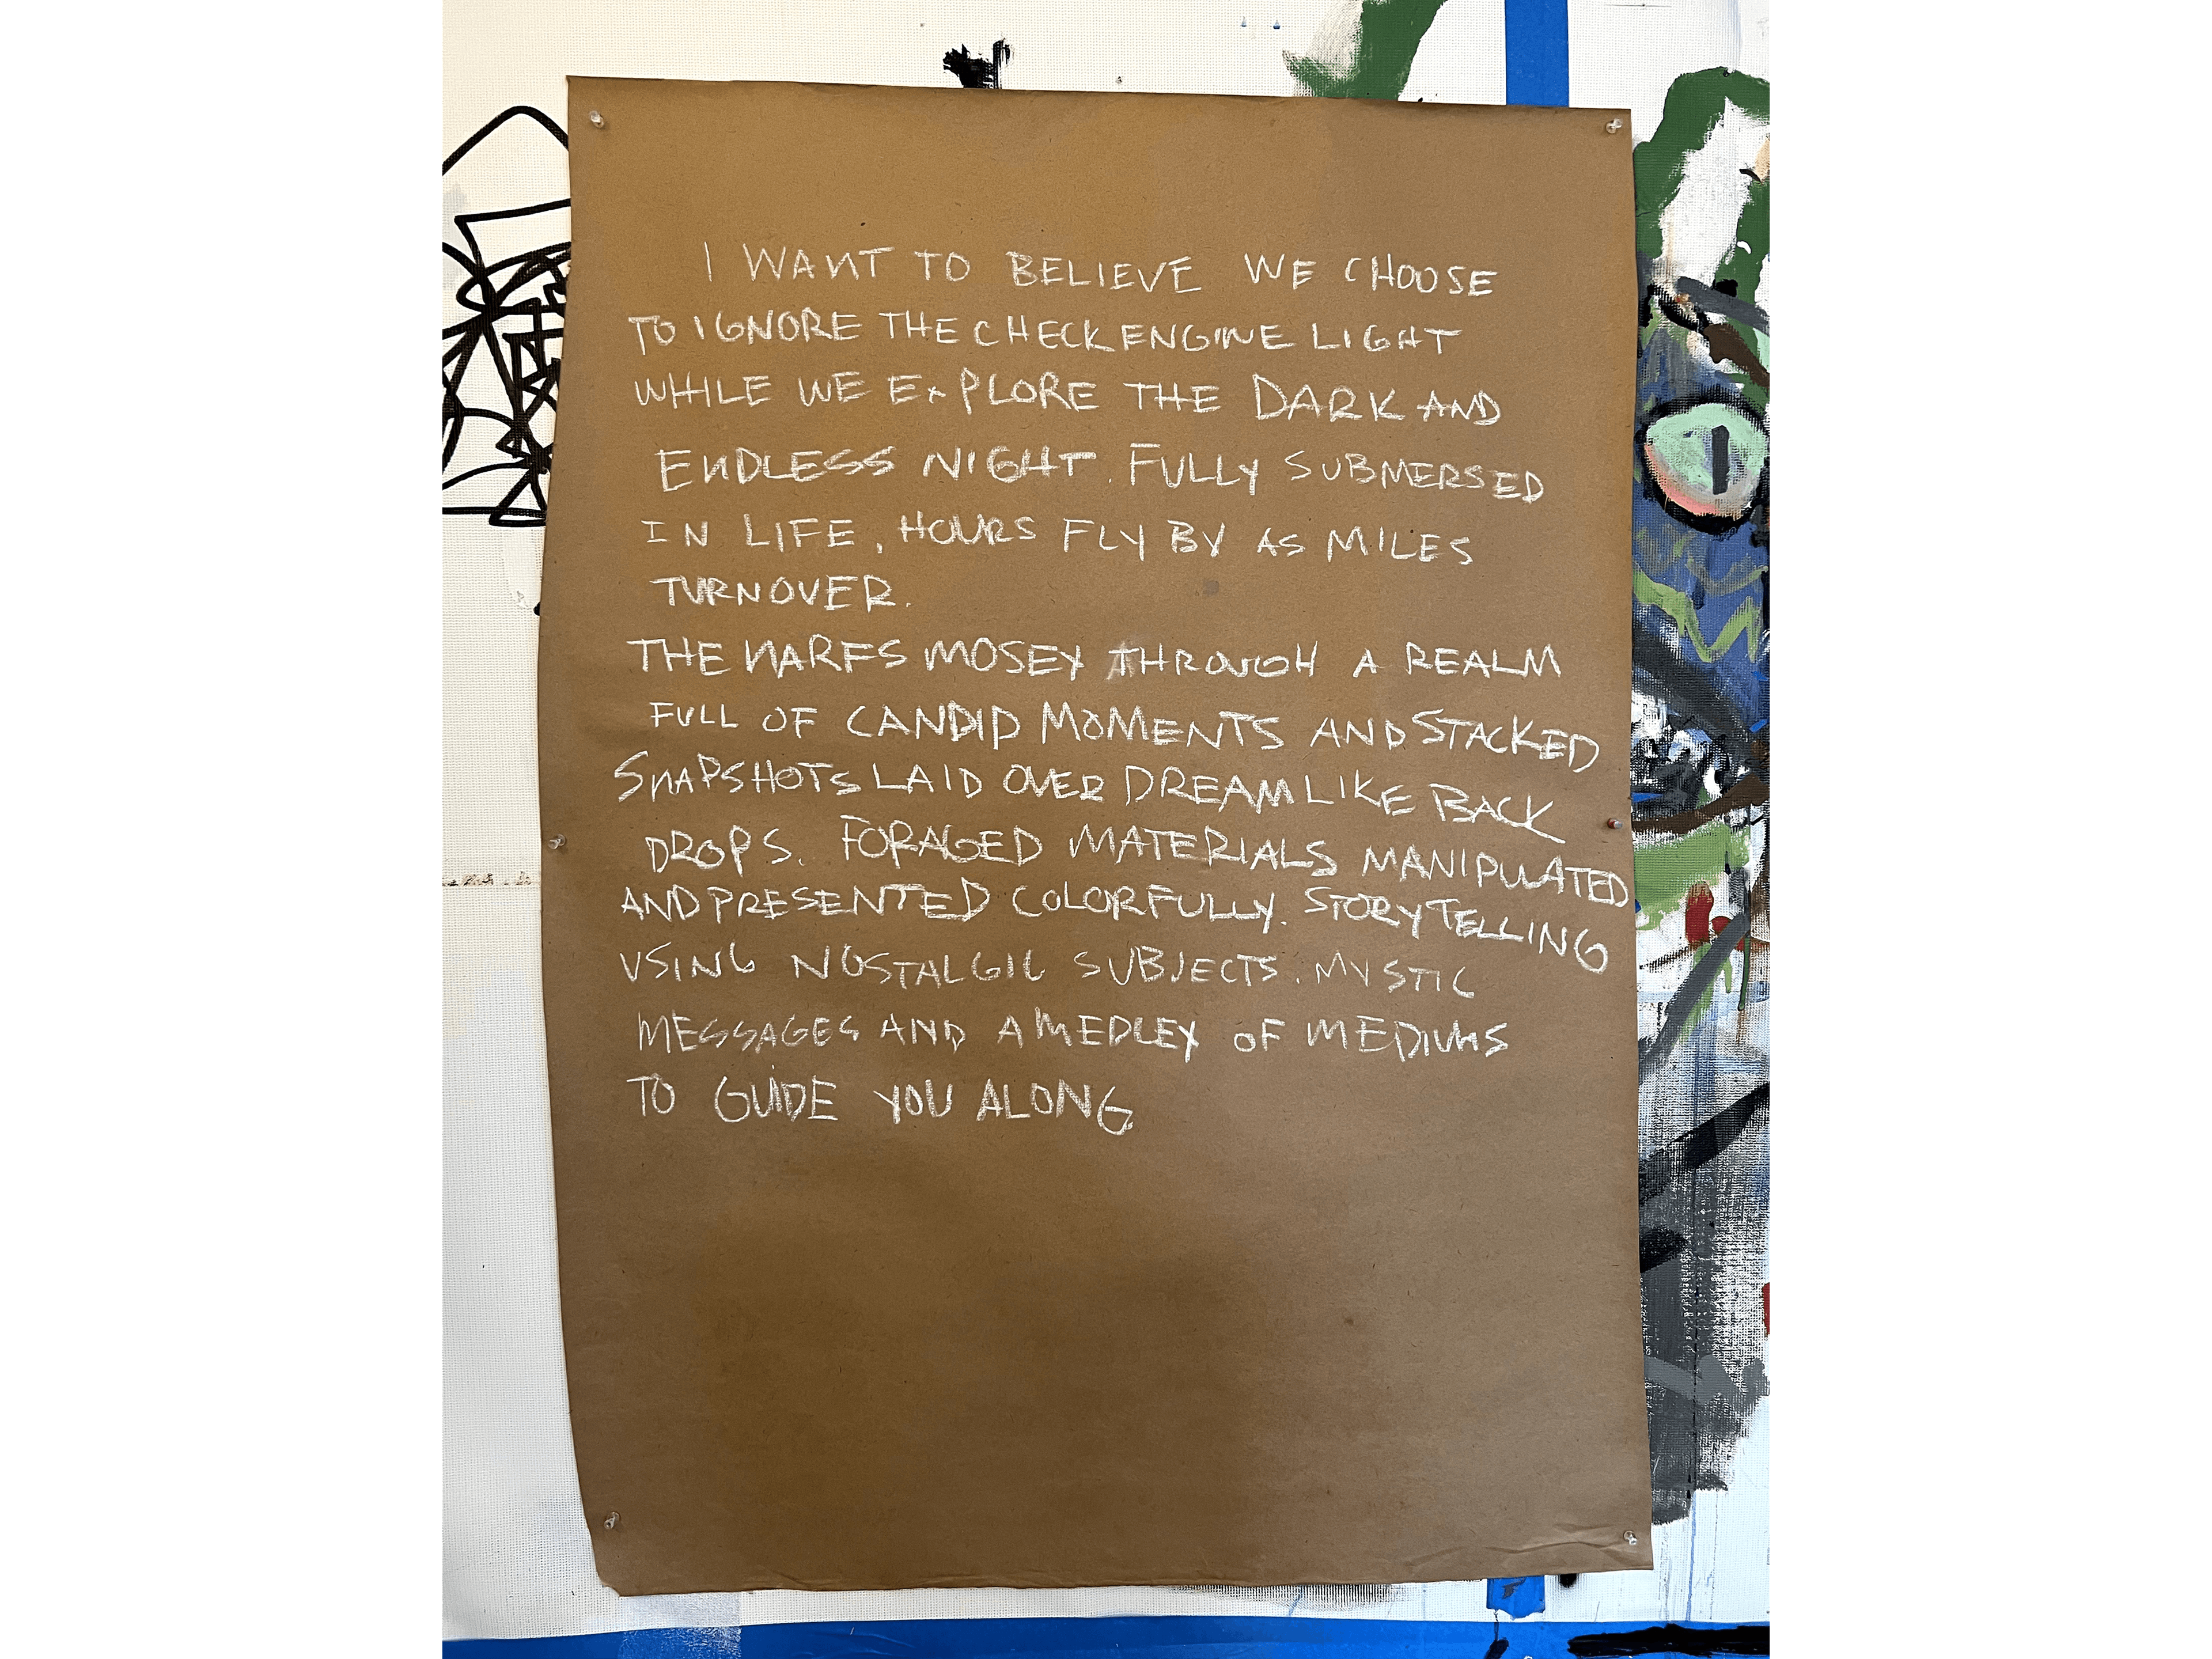 I WANT TO BELIEVE WE CHOOSE
TO IGNORE THE CHECK ENGINE LIGHT
WHILE WE EXPLORE THE DARK AND
ENDLESS NIGHT. FULLY SUBMERSED
IN LIFE, HOURS FLY BY AS MILES
TURNOVER.
THE NARFS MOSEY THROUGH A REALM
FULL OF CANDID MOMENTS AND STACKED
SNAPSHOTS LAID OVER DREAMLIKE BACK
DROPS. FORAGED MATERIALS MANIPULATED
AND PRESENTED COLORFULLY. STORYTELLING
USING NOSTALGIC SUBJECTS. MYSTIC
MESSAGES AND A MEDLEY OF MEDIUMS
TO GUIDE YOU ALONG